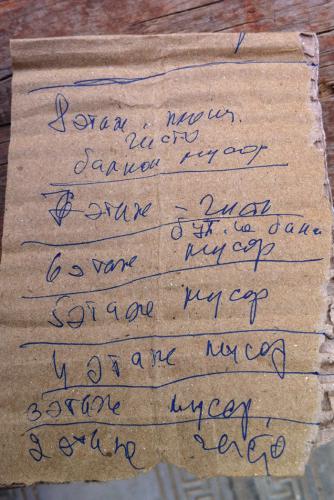 8 этаж. площ.
чисто
балкон мусор
7 этаж - чисто
бут. на балк
6 этаж мусор
5 этаже мусор
4 этаже мусор
3 этаже мусор,
2 этаже чисто